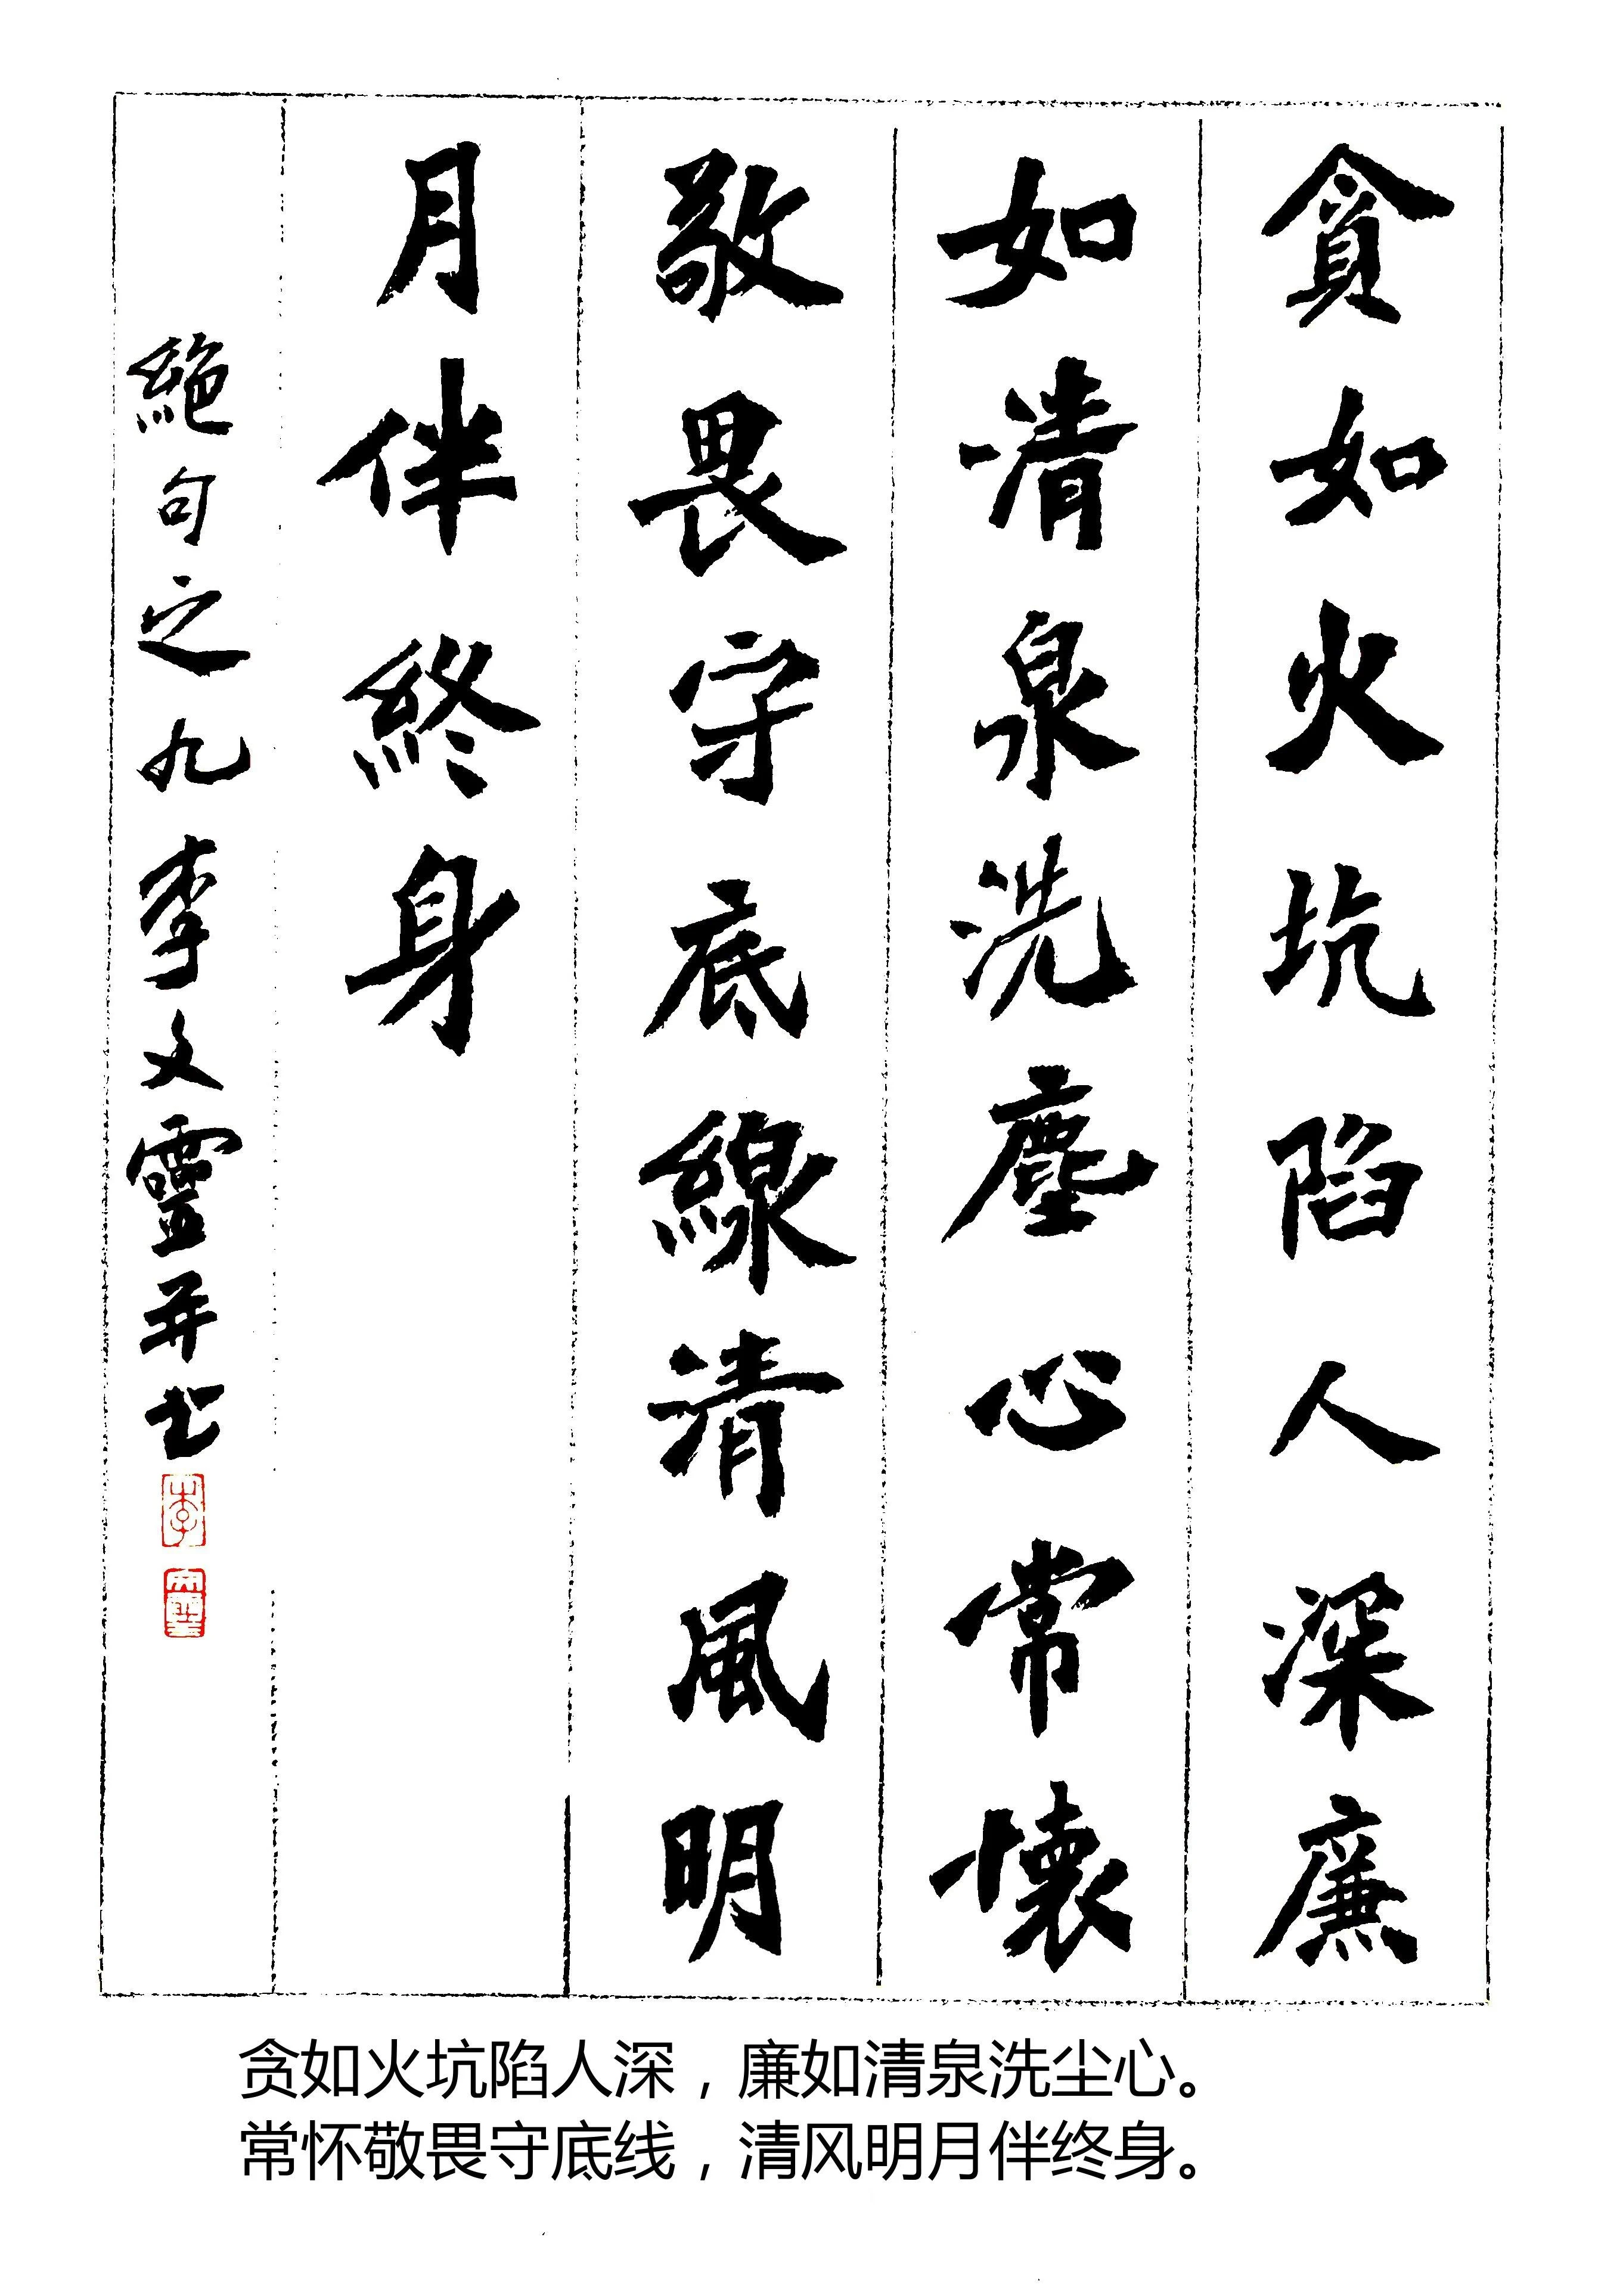 貪如火坑陷人深廉
如清泉洗塵心常懷
敬畏守底線清風明
月伴終身
絕句之九李文靈并书
李
文靈
贪如火坑陷人深，廉如清泉洗尘心。
常怀敬畏守底线，清风明月伴终身。